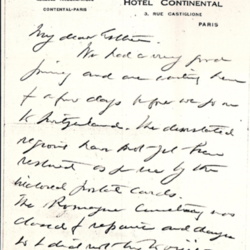 HOTEL CONTINENTAL
CONTENTAL-PARIS
3, RUE CASTIGLIONE
PARIS
My dear Esther:
We had a very good
and are waiting here
a few days before we go on
to Switzerland. The devastated
regions have not yet been
restored as you see by the
enclosed postal cards.
The Romagne Cemetery was
closed for repairs and changes
so I did not